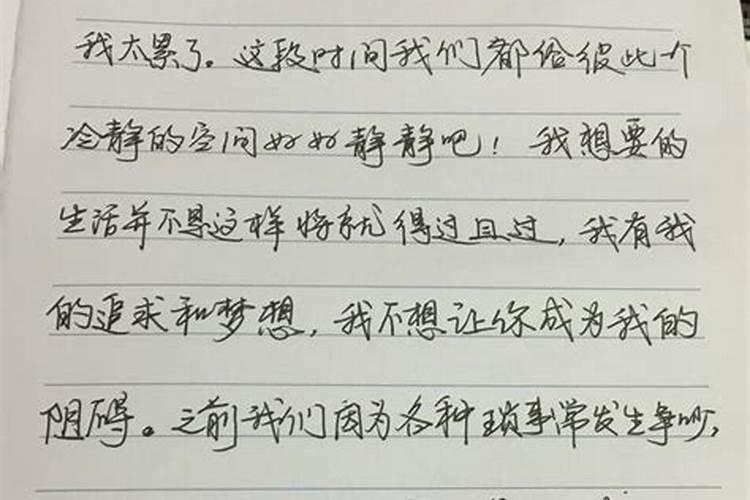 我太累了。这段时间我们都给彼此个
冷静的空间好好静静吧！我想要的
生活并不是这样将就得过且过，我有我
的追求和梦想，我不想让你成为我的
阻碍。之前我们因为各种琐事常发生争吵，